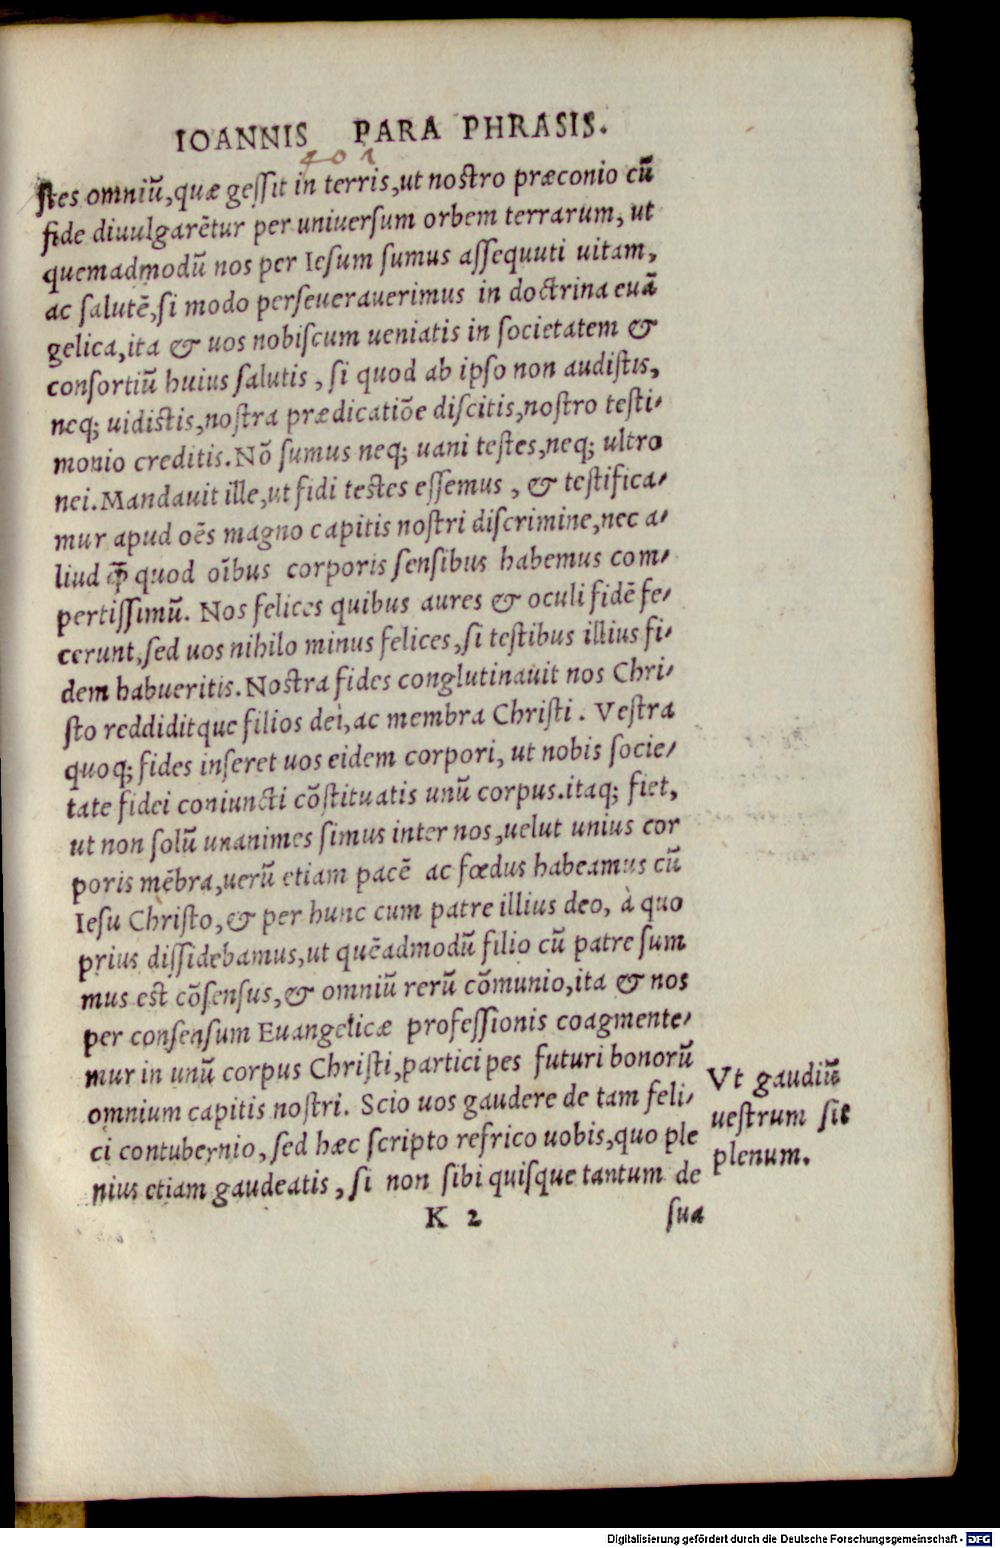 IOANNIS PARA PHRASIS.
401
ſtes omniũ, quæ geſſit in terris, ut noſtro præconio cũ
fide diuulgarẽtur per uniuerſum orbem terrarum, ut
quemadmodũ nos per Ieſum ſumus aſſequuti uitam,
ac ſalutẽ, ſi modo perſeuerauerimus in doctrina euã
gelica, ita & uos nobiſcum ueniatis in ſocietatem &
conſortiũ huius ſalutis, ſi quod ab ipſo non audiſtis,
neq; uidiſtis, noſtra prædicatiõe diſcitis, noſtro teſti-
monio creditis. Nõ ſumus neq; uani teſtes, neq; ultro
nei. Mandauit ille, ut fidi teſtes eſſemus, & teſtifica-
mur apud oẽs magno capitis noſtri diſcrimine, nec a-
liud ꝙ̃ quod oĩbus corporis ſenſibus habemus com-
pertiſſimũ. Nos felices quibus aures & oculi fidẽ fe-
cerunt, ſed uos nihilo minus felices, ſi teſtibus illius fi-
dem habueritis. Noſtra fides conglutinauit nos Chri-
ſto reddiditque filios dei, ac membra Chriſti. Veſtra
quoq; fides inſeret uos eidem corpori, ut nobis ſocie-
tate fidei coniuncti cõſtituatis unũ corpus. itaq; fiet,
ut non ſolũ unanimes ſimus inter nos, uelut unius cor
poris mẽbra, uerũ etiam pacẽ ac fœdus habeamus cũ
Ieſu Chriſto, & per hunc cum patre illius deo, à quo
prius diſſidebamus, ut quẽadmodũ filio cũ patre ſum
mus eſt cõſenſus, & omniũ rerũ cõmunio, ita & nos
per conſenſum Euangelicæ profeſſionis coagmente-
mur in unũ corpus Chriſti, partici pes futuri bonorũ
omnium capitis noſtri. Scio uos gaudere de tam feli-
ci contubernio, ſed hæc ſcripto refrico uobis, quo ple
nius etiam gaudeatis, ſi non ſibi quiſque tantum de
Vt gaudiũ
ueſtrum ſit
plenum.
K 2
ſua
Digitalisierung gefördert durch die Deutsche Forschungsgemeinschaft - DFG